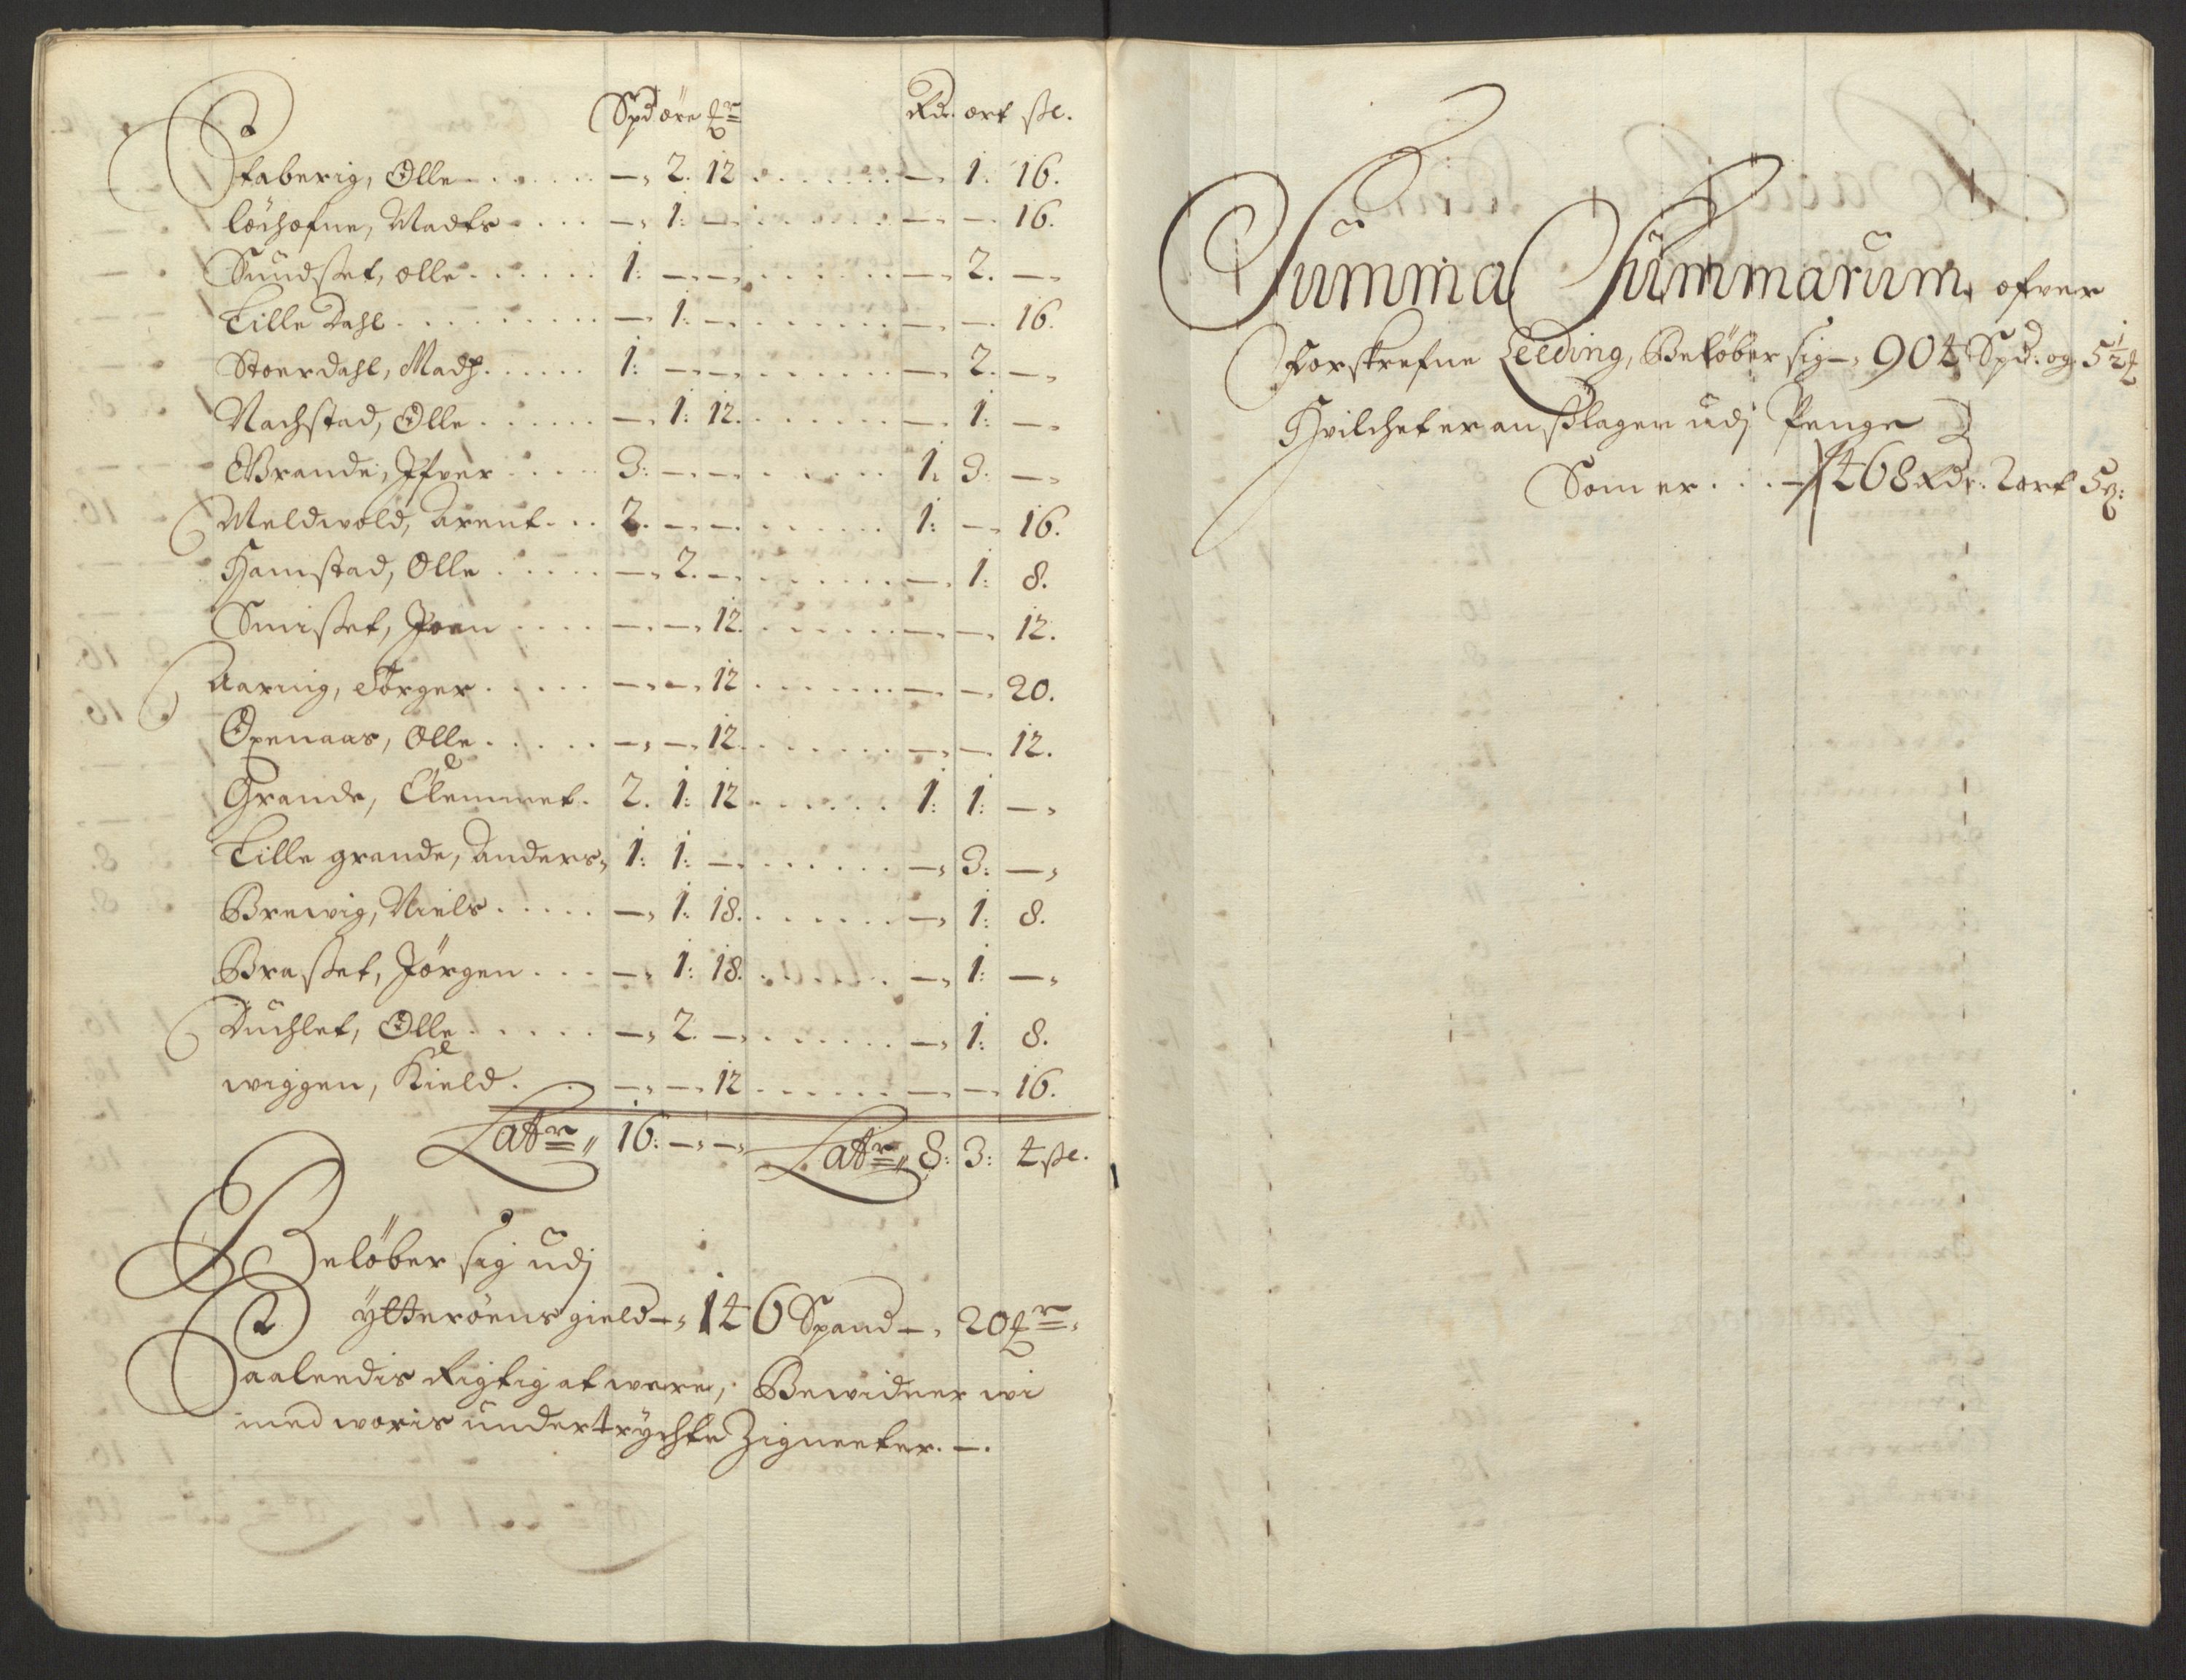 Spd øre
Rdr. ort sk.
Staberig, Olle . . . . . —, 2. 12 . . . . . . . —, 1. 16.
Madts . . . . —, 1: —, . . . . . . . —, —, 16.
Sundset, olle . . . . . . 1: —, —, . . . . . . . —, 2. —,
Lille Dahl . . . . . . . . —, 1: —, . . . . . . . —, —, 16.
Stoerdahl, . . . . . 1: —, —, . . . . . . . —, 2. —,
Nachstad, Olle . . . . . . —, 1: 12. . . . . . . . —, 1: —,
Brande, Ifver . . . . 3: —, —, . . . . . . . 1. 3. —,
Meldwold, Arent . . . 2. —, —, . . . . . . . 1: —, 16.
Hamstad, Olle . . . . . —, 2. —, . . . . . . . —, 1: 8.
Smisset, Joen . . . . —, —, 12. . . . . . . . —, —, 12.
Aarnig, Torger . . . . . —, —, 12 . . . . . . . —, —, 20.
Oxenaas, Olle . . . . . —, —, 12. . . . . . . . —, —, 12.
Grande, Clemmet . 2. 1: 12 . . . . . . . 1: 1: —,
Lille grande, Anders, 1: 1: —, . . . . . . . —, 3: —,
Brewig, Niels . . . . . —, 1: 18. . . . . . . . —, 1: 8.
Brasset, Jörgen . . . —, 1: 18. . . . . . . . —, 1: —,
Duchlet, Olle . . . . . —, 2. —, . . . . . . . —, 1: 8.
wiggen, Kield . . —, —, 12 . . . . . . . —, —, 16.
Lattr 16: —, —, Lattr 8: 3: 4 sk.
Beløber sig udj
Ytterøens gield —, 146 Spand —, 20
Saaleedis Rigtig at were, Bewidner wi
med woris undertrychte Zigneeter. —.
Summa Summarum, ofver
Forskrefne Leeding, Beløber sig —, 904 Spd. og 5½
Hvilchet er anslagen udj Penge
Som er . . . — 468 Rdr. 2 ort 5